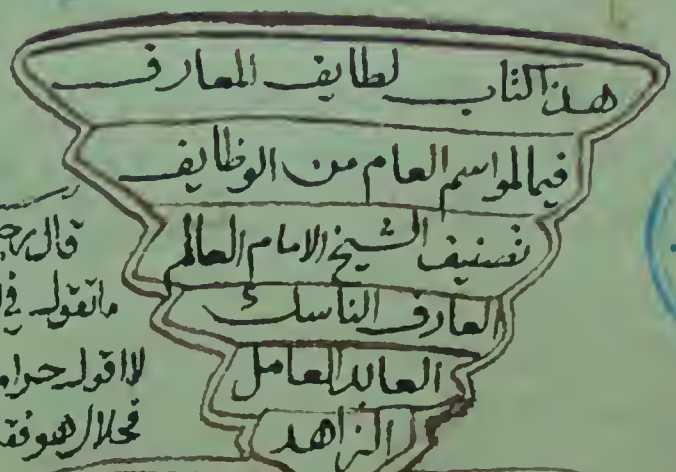 هذا الكتاب لطايف المعارف
فيما لمواسم العام من الوظايف
تصنيف الشيخ الامام العالم
العارف الناسك
العابد العامل
الزاهد
قال رجل
ماتقول في
لا اقول حرام
فحلال هو فقا